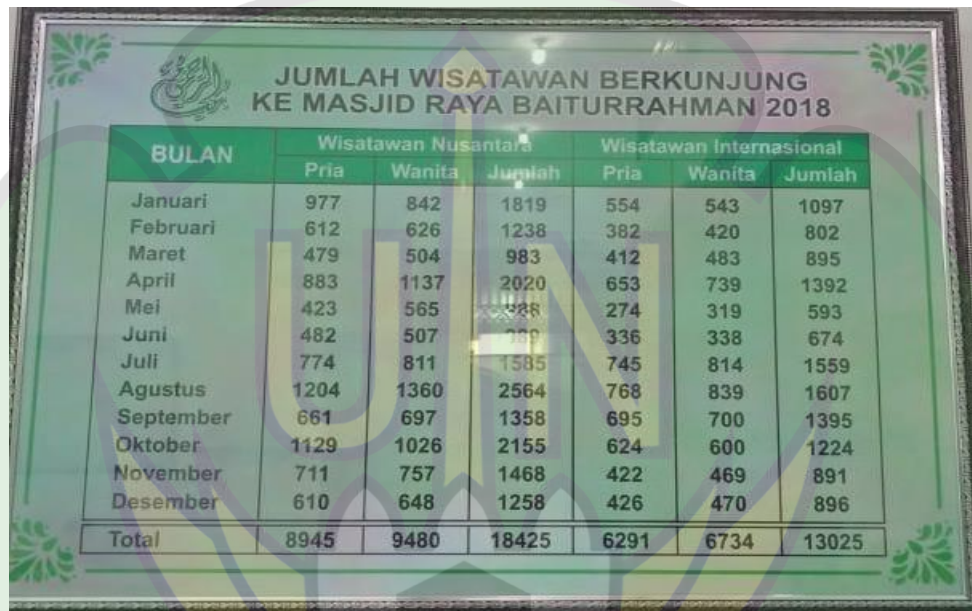 JUMLAH WISATAWAN BERKUNJUNG
KE MASJID RAYA BAITURRAHMAN 2018
BULAN Wisatawan Nusantara Wisatawan Internasional
Pria Wanita Jumlah Pria Wanita Jumlah
Januari 977 842 1819 554 543 1097
Februari 612 626 1238 382 420 802
Maret 479 504 983 412 483 895
April 883 1137 2020 653 739 1392
Mei 423 565 988 274 319 593
Juni 482 507 336 338 674
Juli 774 811 1585 745 814 1559
Agustus 1204 1360 2564 768 839 1607
September 661 697 1358 695 700 1395
Oktober 1129 1026 2155 624 600 1224
November 711 757 1468 422 469 891
Desember 610 648 1258 426 470 896
Total 8945 9480 18425 6291 6734 13025